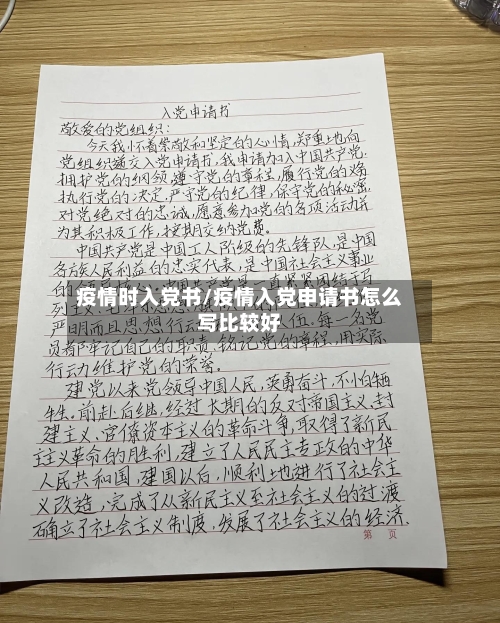 入党申请书
敬爱的党组织:
今天我怀着崇敬和坚定的心情,郑重地向
党组织递交入党申请书,我申请加入中国共产党,
拥护党的纲领,遵守党的章程,履行党的义务
执行党的决定,严守党的纪律,保守党的秘密,
对党绝对的忠诚,愿意参加党的各项活动并
为其积极工作,按期交纳党费。
中国共产党是中国工人阶级的先锋队,是中国
各族人民利益的忠实代表,是中国社会主义事业
的
疫情时入党书/疫情入党申请书怎么
写比较好
严明而且思想行
队伍,每一名党
员都牢记自己的职责,铭记党的章程,用实际
行动维护党的荣誉。
建党以来党领导中国人民,英勇奋斗,不怕牺
牲,前赴后继,经过长期的反对帝国主义,封
建主义,官僚资本主义的革命斗争,取得了新民
主主义革命的胜利,建立了人民民主专政的中华
人民共和国,建国以后,顺利地进行了社会主
义改造,完成了从新民主主义至社会主义的过渡
确立了社会主义制度,发展了社会主义的经济,
第 页